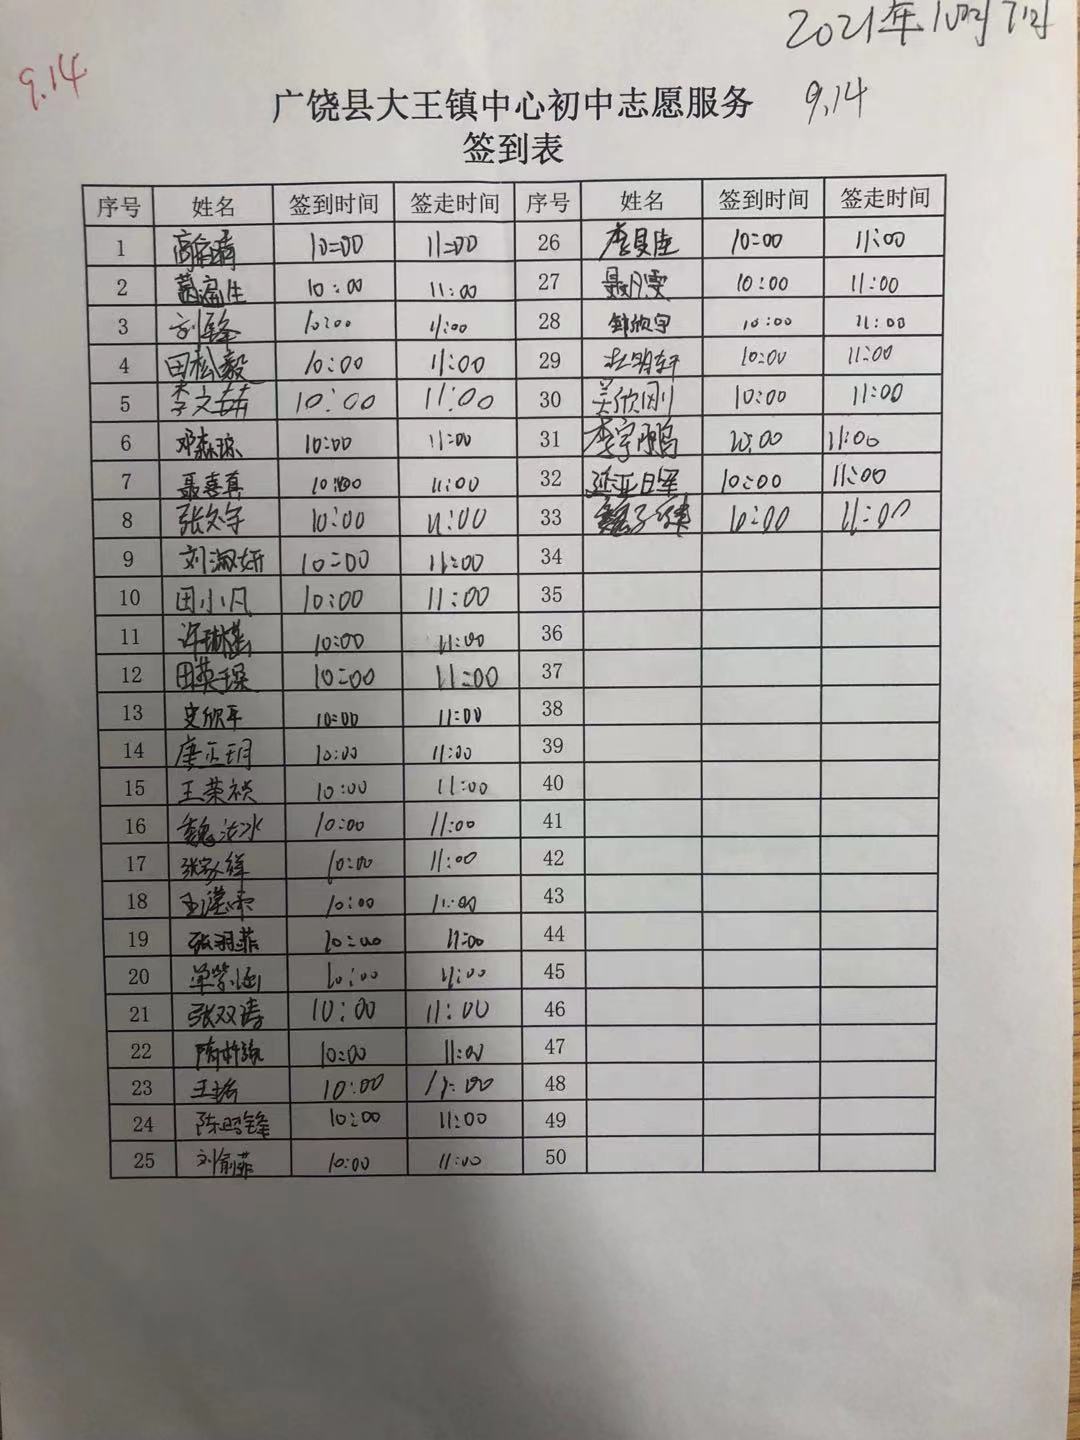 2021年10月7日
9.14
9.14
广饶县大王镇中心初中志愿服务
签到表
序号 姓名 签到时间 签走时间 序号 姓名 签到时间 签走时间
1 10:00 11:00 26 10:00 11:00
2 10:00 11:00 27 10:00 11:00
3 刘锋 10:00 11:00 28 郭欣宇 10:00 11:00
4 田松毅 10:00 11:00 29 杜明轩 10:00 11:00
5 李文茹 10:00 11:00 30 吴欣刚 10:00 11:00
6 邓森琼 10:00 11:00 31 李宇鹏 10:00 11:00
7 聂喜真 10:00 11:00 32 延亚日军 10:00 11:00
8 张文宇 10:00 11:00 33 10:00 11:00
9 刘淑妍 10:00 11:00 34
10 田小凡 10:00 11:00 35
11 10:00 11:00 36
12 田英璟 10:00 11:00 37
13 史欣平 10:00 11:00 38
14 唐正玥 10:00 11:00 39
15 王荣祯 10:00 11:00 40
16 魏洁冰 10:00 11:00 41
17 张家绎 10:00 11:00 42
18 10:00 11:00 43
19 张羽菲 10:00 11:00 44
20 单紫涵 10:00 11:00 45
21 张双涛 10:00 11:00 46
22 10:00 11:00 47
23 10:00 11:00 48
24 陈明锋 10:00 11:00 49
25 刘俞菲 10:00 11:00 50